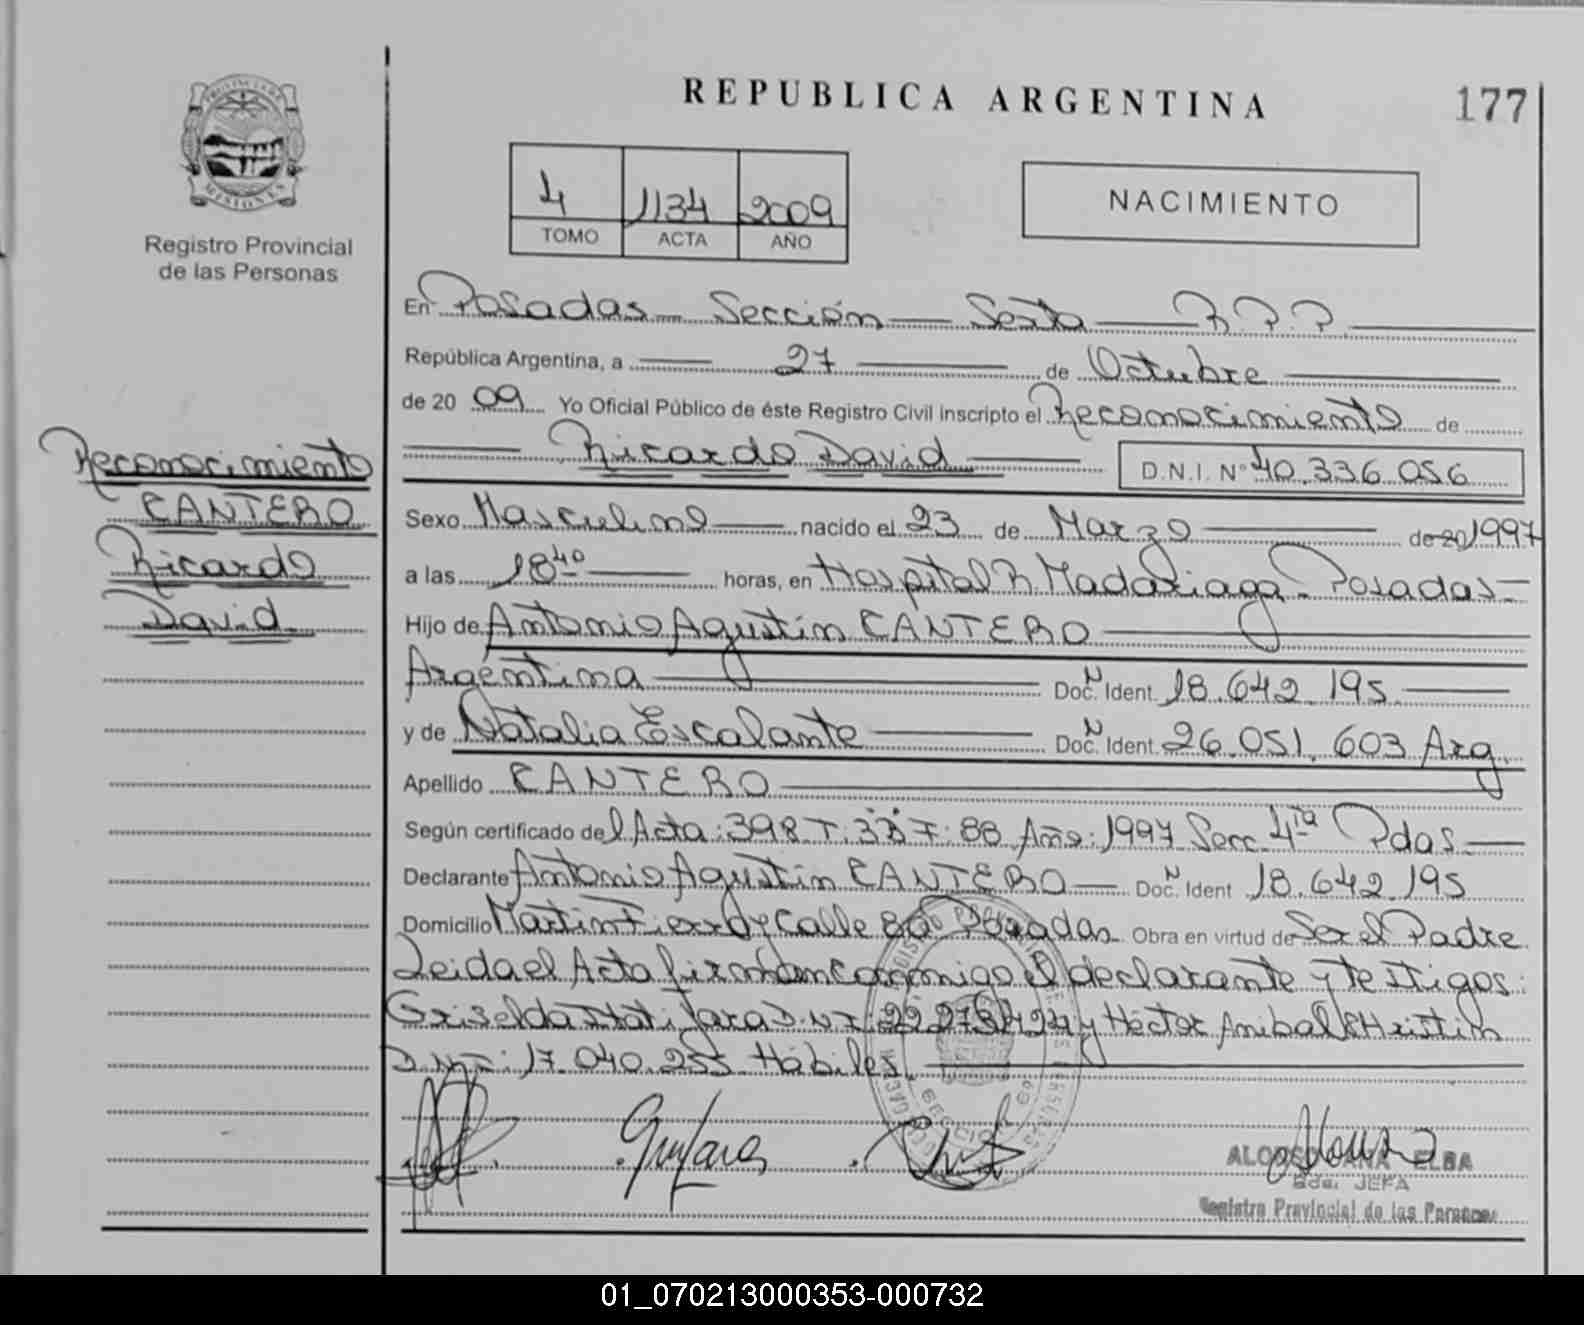 REPUBLICA ARGENTINA
177
PROVINCIA DE
MISIONES
Registro Provincial
de las Personas
4 1134 2009
TOMO ACTA AÑO
NACIMIENTO
Reconocimiento
CANTERO
Ricardo
David
En Posadas Sección Sexta R.P.P.
República Argentina, a 27 de Octubre
de 20 09 Yo Oficial Público de éste Registro Civil inscripto el Reconocimiento de
Ricardo David D.N.I. Nº 40.336.056
Sexo Masculino nacido el 23 de Marzo de 20 1997
a las 18 40 horas, en Hospital R. Madariaga - Posadas -
Hijo de Antonio Agustín CANTERO
Argentina Doc. N Ident. 18.642.195
y de Natalia Escalante Doc. N Ident. 26.051.603 Arg.
Apellido CANTERO
Según certificado del Acta: 398 T: 3B F: 88 Año: 1997 Secc 4ta Pdas.
Declarante Antonio Agustín CANTERO Doc. N Ident 18.642.195
Domicilio Martin Fierro y Calle 80 Posadas Obra en virtud de Ser el Padre
Leida el Acta firman conmigo el declarante y testigos:
Griselda Jara D.N.I: y Héctor Anibal
D.N.I: 17.040.255 Hábiles.
ALONSO ANA ELBA
Jefa
Registro Provincial de las Personas
01_070213000353-000732